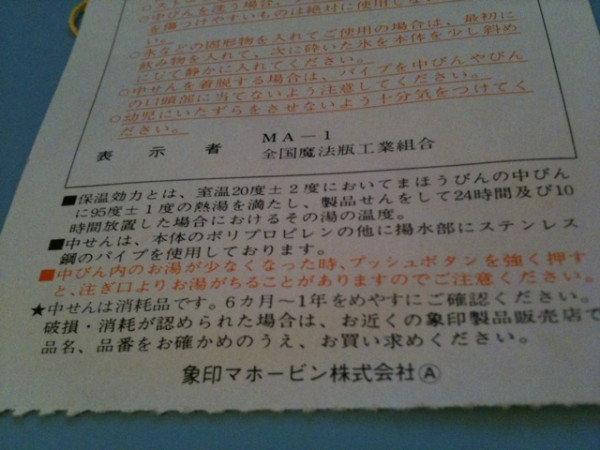 ○中びんを洗う場合、
を傷つけやすいものは絶対に使用しない
○氷などの固形物を入れてご使用の場合は、最初に
飲み物を入れて、次に砕いた氷を本体を少し斜め
にして静かに入れてください。
○中せんを着脱する場合は、パイプを中びんや びん
の口頭部に当てないよう注意してください。
○幼児にいたずらをさせないよう十分気をつけてく
ださい。
表示者 MA－1
全国魔法瓶工業組合
■保温効力とは、室温20度±2度においてまほうびんの中びん
に95度±1度の熱湯を満たし、製品せんをして24時間及び10
時間放置した場合におけるその湯の温度。
■中せんは、本体のポリプロピレンの他に揚水部にステンレス
鋼のパイプを使用しております。
■中びん内のお湯が少なくなった時、プッシュボタンを強く押す
と、注ぎ口よりお湯がちることがありますのでご注意ください。
★中せんは消耗品です。6カ月〜1年をめやすにご確認ください。
破損・消耗が認められた場合は、お近くの象印製品販売店で
品名、品番をお確かめのうえ、お買い求めください。
象印マホービン株式会社Ⓐ